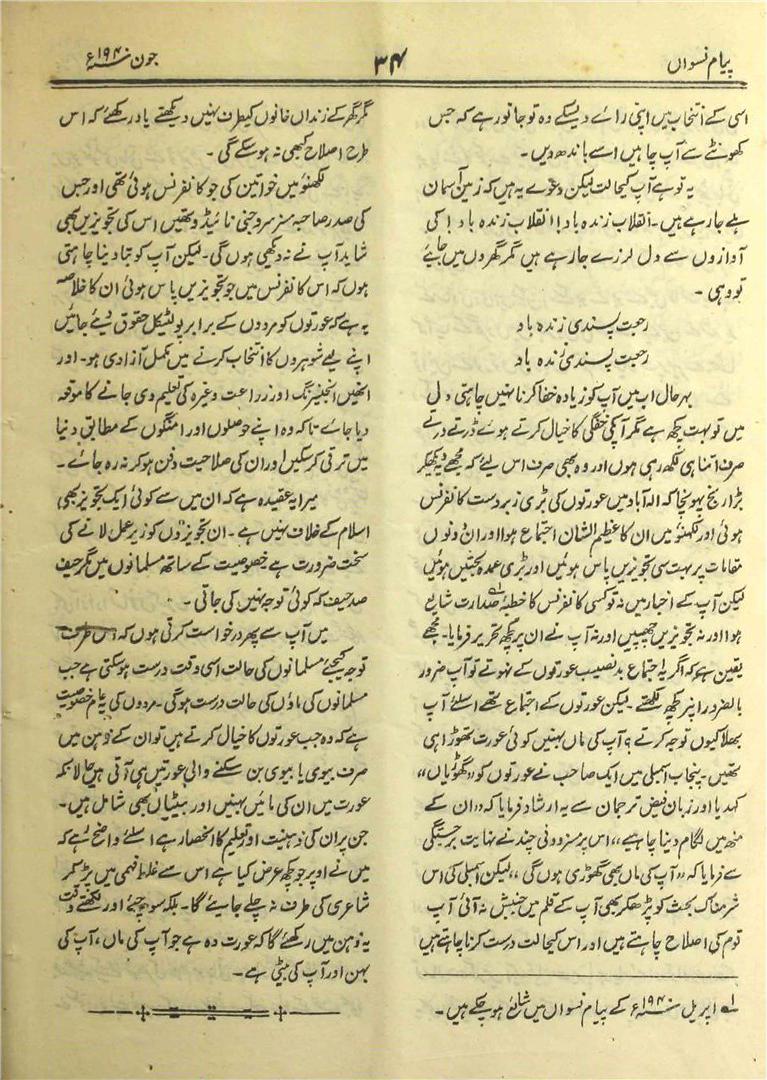 پیام نسواں
۳۴
جون سنہ ۱۹۴۰ء
اسی کے انتخاب میں اپنی رائے دیسکے وہ تو جانور ہے کہ جس
کھونٹے سے آپ چاہیں اسے باندھ دیں۔
یہ تو ہے آپ کیحالت لیکن دعوے یہ ہیں کہ زمین آسمان
ہلے جارہے ہیں۔ انقلاب زندہ باد! انقلاب زندہ باد! کی
آوازوں سے دل لرزے جارہے ہیں مگر گھروں میں جائیے
تو وہی۔
رجعت پسندی زندہ باد
رجعت پسندی زندہ باد
بہر حال اب میں آپ کو زیادہ خفا کرنا نہیں چاہتی دل
میں تو بہت کچھ ہے مگر آپکی خفگی کا خیال کرتے ہوئے ڈرتے ڈرتے
صرف اتنا ہی لکھ رہی ہوں اور وہ بھی صرف اس لیے کہ مجھے دیکھکر
بڑا رنج پہونچا کہ الہ آباد میں عورتوں کی بڑی زبردست کانفرنس
ہوئی اور لکھنؤ میں ان کا عظیم الشان اجتماع ہوا اور ان دونوں
مقامات پر بہت سی تجویزیں پاس ہوئیں اور بڑی عمدہ بحثیں ہوئیں
لیکن آپ کے اخبار میں نہ تو کسی کانفرنس کا خطبۂ صدارت شایع
ہوا اور نہ تجویزیں چھپیں اور نہ آپ نے ان پر کچھ تحریر فرمایا۔ مجھے
یقین ہے کہ اگر یہ اجتماع بدنصیب عورتوں کے نہوتے تو آپ ضرور
بالضرور اپنر کچھ لکھتے۔ لیکن عورتوں کے اجتماع تھے اسلئے آپ
بھلا کیوں توجہ کرتے؟ آپ کی ماں بہنیں کوئی عورت تھوڑا ہی
تھیں۔ پنجاب اسمبلی میں ایک صاحب نے عورتوں کو ”گھوڑیاں“
کہدیا اور زبان فیض ترجمان سے یہ ارشاد فرمایا کہ ”ان کے
منھ میں لگام دینا چاہیے“ اس پر مسز دونی چند نے نہایت برجستگی
سے فرمایا کہ ”آپ کی ماں بھی گھوڑی ہوں گی“ لیکن اسمبلی کی اس
شرمناک بحث کو پڑھکر بھی آپ کے قلم میں جنبش نہ آئی آپ
قوم کی اصلاح چاہتے ہیں اور اس کیحالت درست کرنا چاہتے ہیں
لے اپریل سنہ ۱۹۴۰ء کے پیام نسواں میں شائع ہوچکے ہیں۔
مگر گھر کے زنداں خانوں کیطرف نہیں دیکھتے یاد رکھئے کہ اس
طرح اصلاح کبھی نہ ہوسکے گی۔
لکھنؤ میں خواتین کی جو کانفرنس ہوئی تھی اور جس
کی صدر صاحبہ مسز سروجنی نائیڈو تھیں اس کی تجویزیں بھی
شاید آپ نے نہ دیکھی ہوں گی۔ لیکن آپ کو بتا دینا چاہتی
ہوں کہ اس کانفرنس میں جو تجویزیں پاس ہوئی ان کا خلاصہ
یہ ہے کہ عورتوں کو مردوں کے برابر پولٹیکل حقوق دیئے جائیں
اپنے لیے شوہروں کا انتخاب کرنے میں مکمل آزادی ہو۔ اور
انھیں انجنیئرنگ اور زراعت وغیرہ کی تعلیم دی جانے کا موقعہ
دیا جائے تاکہ وہ اپنے حوصلوں اور امنگوں کے مطابق دنیا
میں ترقی کرسکیں اور ان کی صلاحیت دفن ہوکر نہ رہ جائے۔
میرا یہ عقیدہ ہے کہ ان میں سے کوئی ایک تجویز بھی
اسلام کے خلاف نہیں ہے۔ ان تجویزوں کو زیر عمل لانے کی
سخت ضرورت ہے خصوصیت کے ساتھ مسلمانوں میں مگر حیف
صد حیف کہ کوئی توجہ نہیں کی جاتی۔
میں آپ سے پھر درخواست کرتی ہوں کہ اس طرف
توجہ کیجئے مسلمانوں کی حالت اسی وقت درست ہوسکتی ہے جب
مسلمانوں کی ماؤں کی حالت درست ہوگی۔ مردوں کی یہ عام خصوصیت
ہے کہ وہ جب عورتوں کا خیال کرتے ہیں تو ان کے ذہن میں
صرف بیوی یا بیوی بن سکنے والی عورتیں ہی آتی ہیں حالانکہ
عورت میں ان کی مائیں بہنیں اور بیٹیاں بھی شامل ہیں۔
جن پر ان کی ذہنیت اور تعلیم کا انحصار ہے اسلئے واضح رہے کہ
میں نے اوپر جو کچھ عرض کیا ہے اس سے غلط فہمی میں پڑ کر
شاعری کی طرف نہ چلے جایئے گا۔ بلکہ سوچئے اور لکھتے وقت
یہ ذہن میں رکھئے گا کہ عورت وہ ہے جو آپ کی ماں، آپ کی
بہن اور آپ کی بیٹی ہے۔